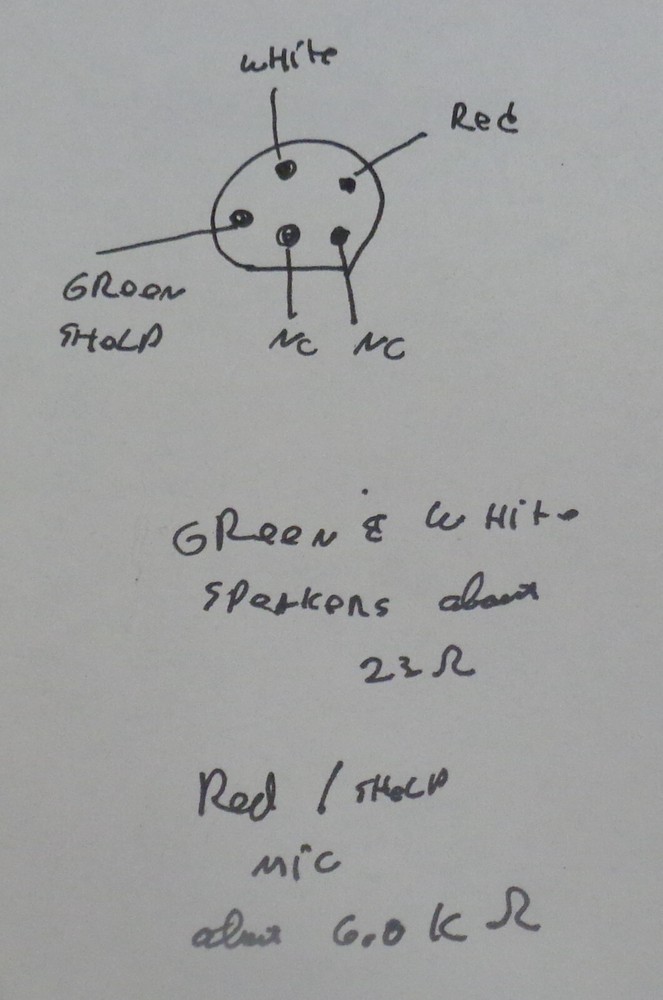 White
Red
GReen
SHeLD
NC NC
GReen & WHite
SPeakers about
23 Ω
Red / SHeLD
MIC
about 6.0 K Ω